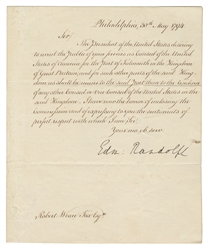 Philadelphia, 30th May 1794
Sir,
The President of the United States desiring
to avail the Public of your services as Consul of the United
States of America for the Port of Falmouth in the Kingdom
of Great Britain, and for such other parts of the said King-
dom, as shall be nearer to the said Port than to the residence
of any other Consul or Vice Consul of the United States in the
said Kingdom. I have now the honor of enclosing the
Commission and of expressing to you the sentiments of
perfect respect with which I am Sir,
Your mo. ob. serv
Edm Randolph
Robert Weare Fox Esqr.